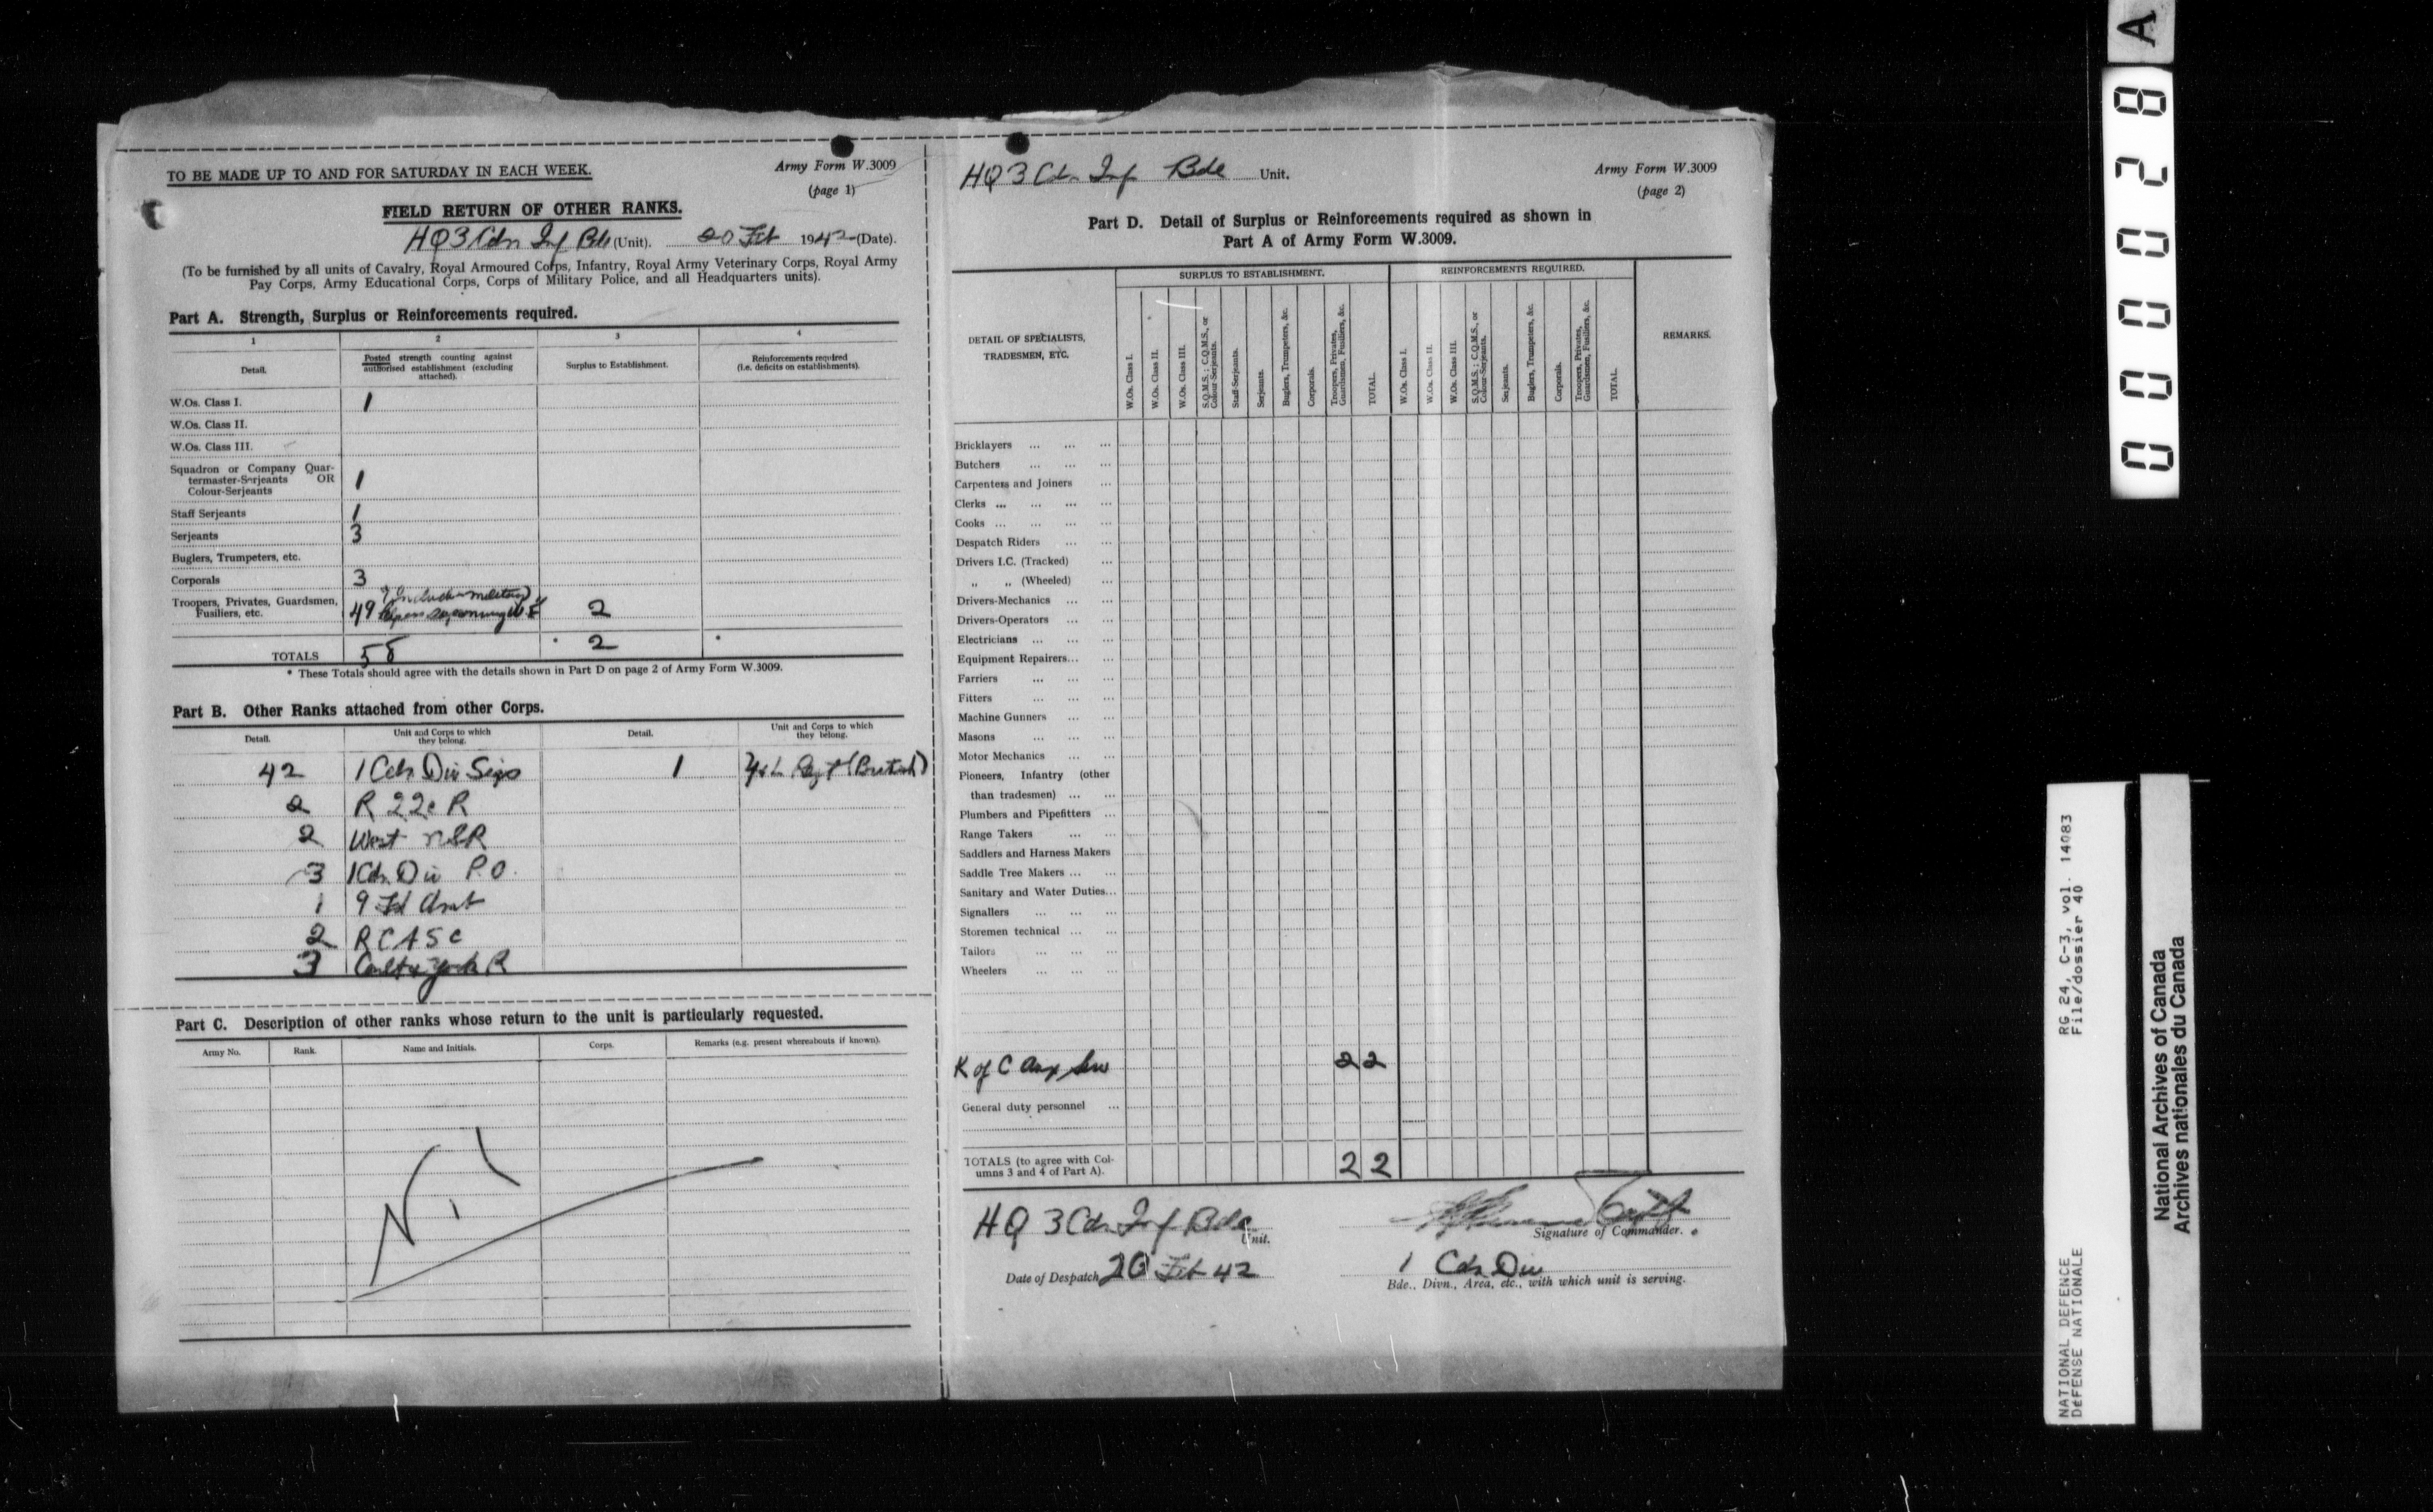 TO BE MADE UP TO AND FOR SATURDAY IN EACH WEEK.
Army Form W.3009
(page 1)
FIELD RETURN OF OTHER RANKS.
HQ 3 Cdn Inf Bde (Unit). 20 Feb 1942 (Date).
(To be furnished by all units of Cavalry, Royal Armoured Corps, Infantry, Royal Army Veterinary Corps, Royal Army
Pay Corps, Army Educational Corps, Corps of Military Police, and all Headquarters units).
Part A. Strength, Surplus or Reinforcements required.
1 2 3 4
Detail.
Posted strength counting against
authorised establishment (excluding
attached).
Surplus to Establishment.
Reinforcements required
(i.e. deficits on establishments).
W.Os. Class I. 1
W.Os. Class II.
W.Os. Class III.
Squadron or Company Quar-
termaster-Serjeants OR
Colour-Serjeants 1
Staff Serjeants 1
Serjeants 3
Buglers, Trumpeters, etc.
Corporals 3
Troopers, Privates, Guardsmen,
Fusiliers, etc. 49 2
TOTALS 58 * 2 *
* These Totals should agree with the details shown in Part D on page 2 of Army Form W.3009.
Part B. Other Ranks attached from other Corps.
Detail.
Unit and Corps to which
they belong.
Detail.
Unit and Corps to which
they belong.
42 1 Cdn Div Sigs 1 Regt (British)
2 R 22e R
2 West NSR
3 1 Cdn Div P.O.
1 9 Fd Amb
2 RCASC
3 Carlt & York R
Part C. Description of other ranks whose return to the unit is particularly requested.
Army No. Rank. Name and Initials. Corps. Remarks (e.g. present whereabouts if known).
Nil
HQ 3 Cdn Inf Bde Unit.
Army Form W.3009
(page 2)
Part D. Detail of Surplus or Reinforcements required as shown in
Part A of Army Form W.3009.
DETAIL OF SPECIALISTS,
TRADESMEN, ETC.
SURPLUS TO ESTABLISHMENT.
W.Os. Class I.
W.Os. Class II.
W.Os. Class III.
S.Q.M.S.; C.Q.M.S., or
Colour-Serjeants.
Staff-Serjeants.
Serjeants.
Buglers, Trumpeters, &c.
Corporals.
Troopers, Privates,
Guardsmen, Fusiliers, &c.
TOTAL.
REINFORCEMENTS REQUIRED.
W.Os. Class I.
W.Os. Class II.
W.Os. Class III.
S.Q.M.S.; C.Q.M.S., or
Colour-Serjeants.
Serjeants.
Buglers, Trumpeters, &c.
Corporals.
Troopers, Privates,
Guardsmen, Fusiliers, &c.
TOTAL.
REMARKS.
Bricklayers ... ... ...
Butchers ... ... ...
Carpenters and Joiners ...
Clerks ... ... ... ...
Cooks ... ... ... ...
Despatch Riders ... ...
Drivers I.C. (Tracked) ...
„ „ (Wheeled) ...
Drivers-Mechanics ... ...
Drivers-Operators ... ...
Electricians ... ... ...
Equipment Repairers... ...
Farriers ... ... ...
Fitters ... ... ...
Machine Gunners ... ...
Masons ... ... ...
Motor Mechanics ... ...
Pioneers, Infantry (other
than tradesmen) ... ...
Plumbers and Pipefitters ...
Range Takers ... ...
Saddlers and Harness Makers
Saddle Tree Makers ... ...
Sanitary and Water Duties...
Signallers ... ... ...
Storemen technical ... ...
Tailors ... ... ...
Wheelers ... ... ...
K of C Aux Serv 2 2
General duty personnel ...
TOTALS (to agree with Col-
umns 3 and 4 of Part A). 2 2
HQ 3 Cdn Inf Bde
Unit.
Signature of Commander.
Date of Despatch 20 Feb 42
1 Cdn Div
Bde., Divn., Area, etc., with which unit is serving.
000028 A
NATIONAL DEFENCE RG 24, C-3, vol. 14083
DEFENSE NATIONALE File/dossier 40
National Archives of Canada
Archives nationales du Canada